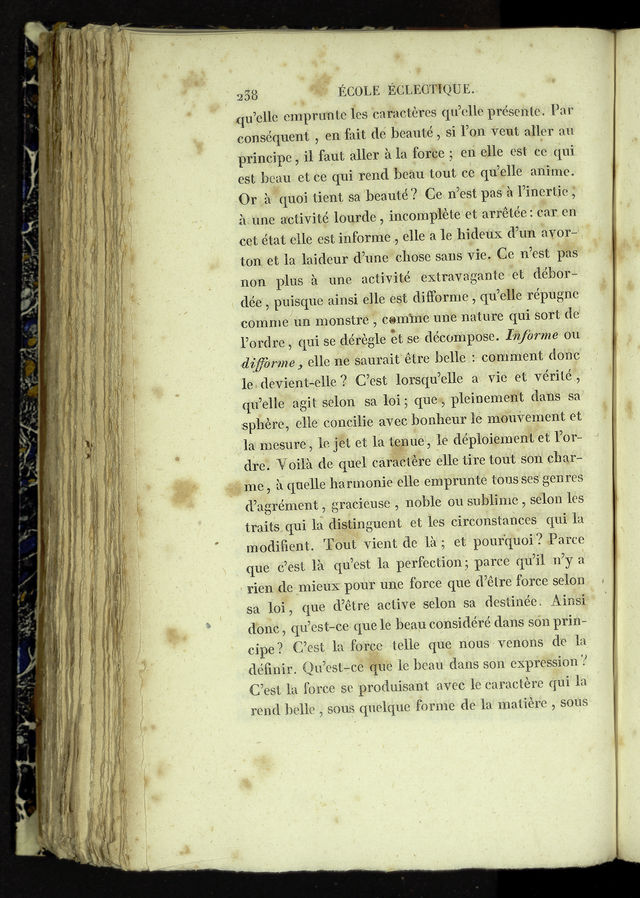 238 ÉCOLE ÉCLECTIQUE.
qu'elle emprunte les caractères qu'elle présente. Par
conséquent , en fait de beauté , si l'on veut aller au
principe , il faut aller à la force ; en elle est ce qui
est beau et ce qui rend beau tout ce qu'elle anime.
Or à quoi tient sa beauté? Ce n'est pas à l'inertie ,
à une activité lourde , incomplète et arrêtée : car en
cet état elle est informe , elle a le hideux d'un avor-
ton et la laideur d'une chose sans vie. Ce n'est pas
non plus à une activité extravagante et débor-
dée , puisque ainsi elle est difforme , qu'elle répugne
comme un monstre , comme une nature qui sort de
l'ordre , qui se dérègle et se décompose. Informe ou
difforme , elle ne saurait être belle : comment donc
le devient-elle ? C'est lorsqu'elle a vie et vérité ,
qu'elle agit selon sa loi ; que , pleinement dans sa
sphère, elle concilie avec bonheur le mouvement et
la mesure , le jet et la tenue, le déploiement et l'or-
dre. Voilà de quel caractère elle tire tout son char-
me , à quelle harmonie elle emprunte tous ses genres
d'agrément , gracieuse , noble ou sublime , selon les
traits qui la distinguent et les circonstances qui la
modifient. Tout vient de là ; et pourquoi ? Parce
que c'est là qu'est la perfection ; parce qu'il n'y a
rien de mieux pour une force que d'être force selon
sa loi , que d'être active selon sa destinée. Ainsi
donc , qu'est-ce que le beau considéré dans son prin-
cipe ? C'est la force telle que nous venons de la
définir. Qu'est-ce que le beau dans son expression ?
C'est la force se produisant avec le caractère qui la
rend belle , sous quelque forme de la matière , sous